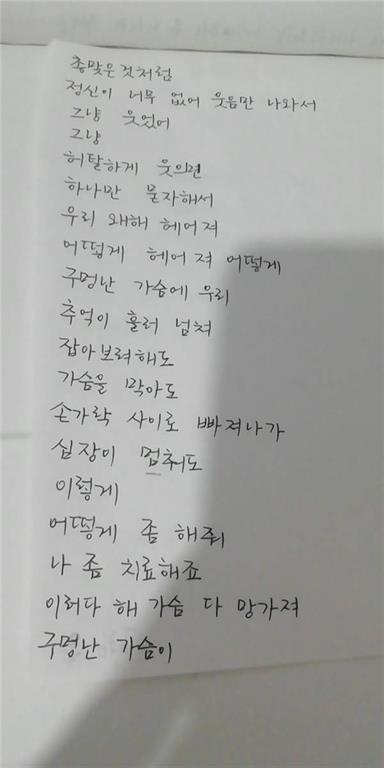 총맞은것처럼
정신이 너무 없어 웃음만 나와서
그냥 웃었어
그냥
허탈하게 웃으면
하나만 묻자해서
우리 왜해 헤어져
어떻게 헤어져 어떻게
구멍난 가슴에 우리
추억이 흘러 넘쳐
잡아보려해도
가슴을 막아도
손가락 사이로 빠져나가
심장이 멈춰도
이렇게
어떻게 좀 해줘
나 좀 치료해죠
이러다 해 가슴 다 망가져
구멍난 가슴이